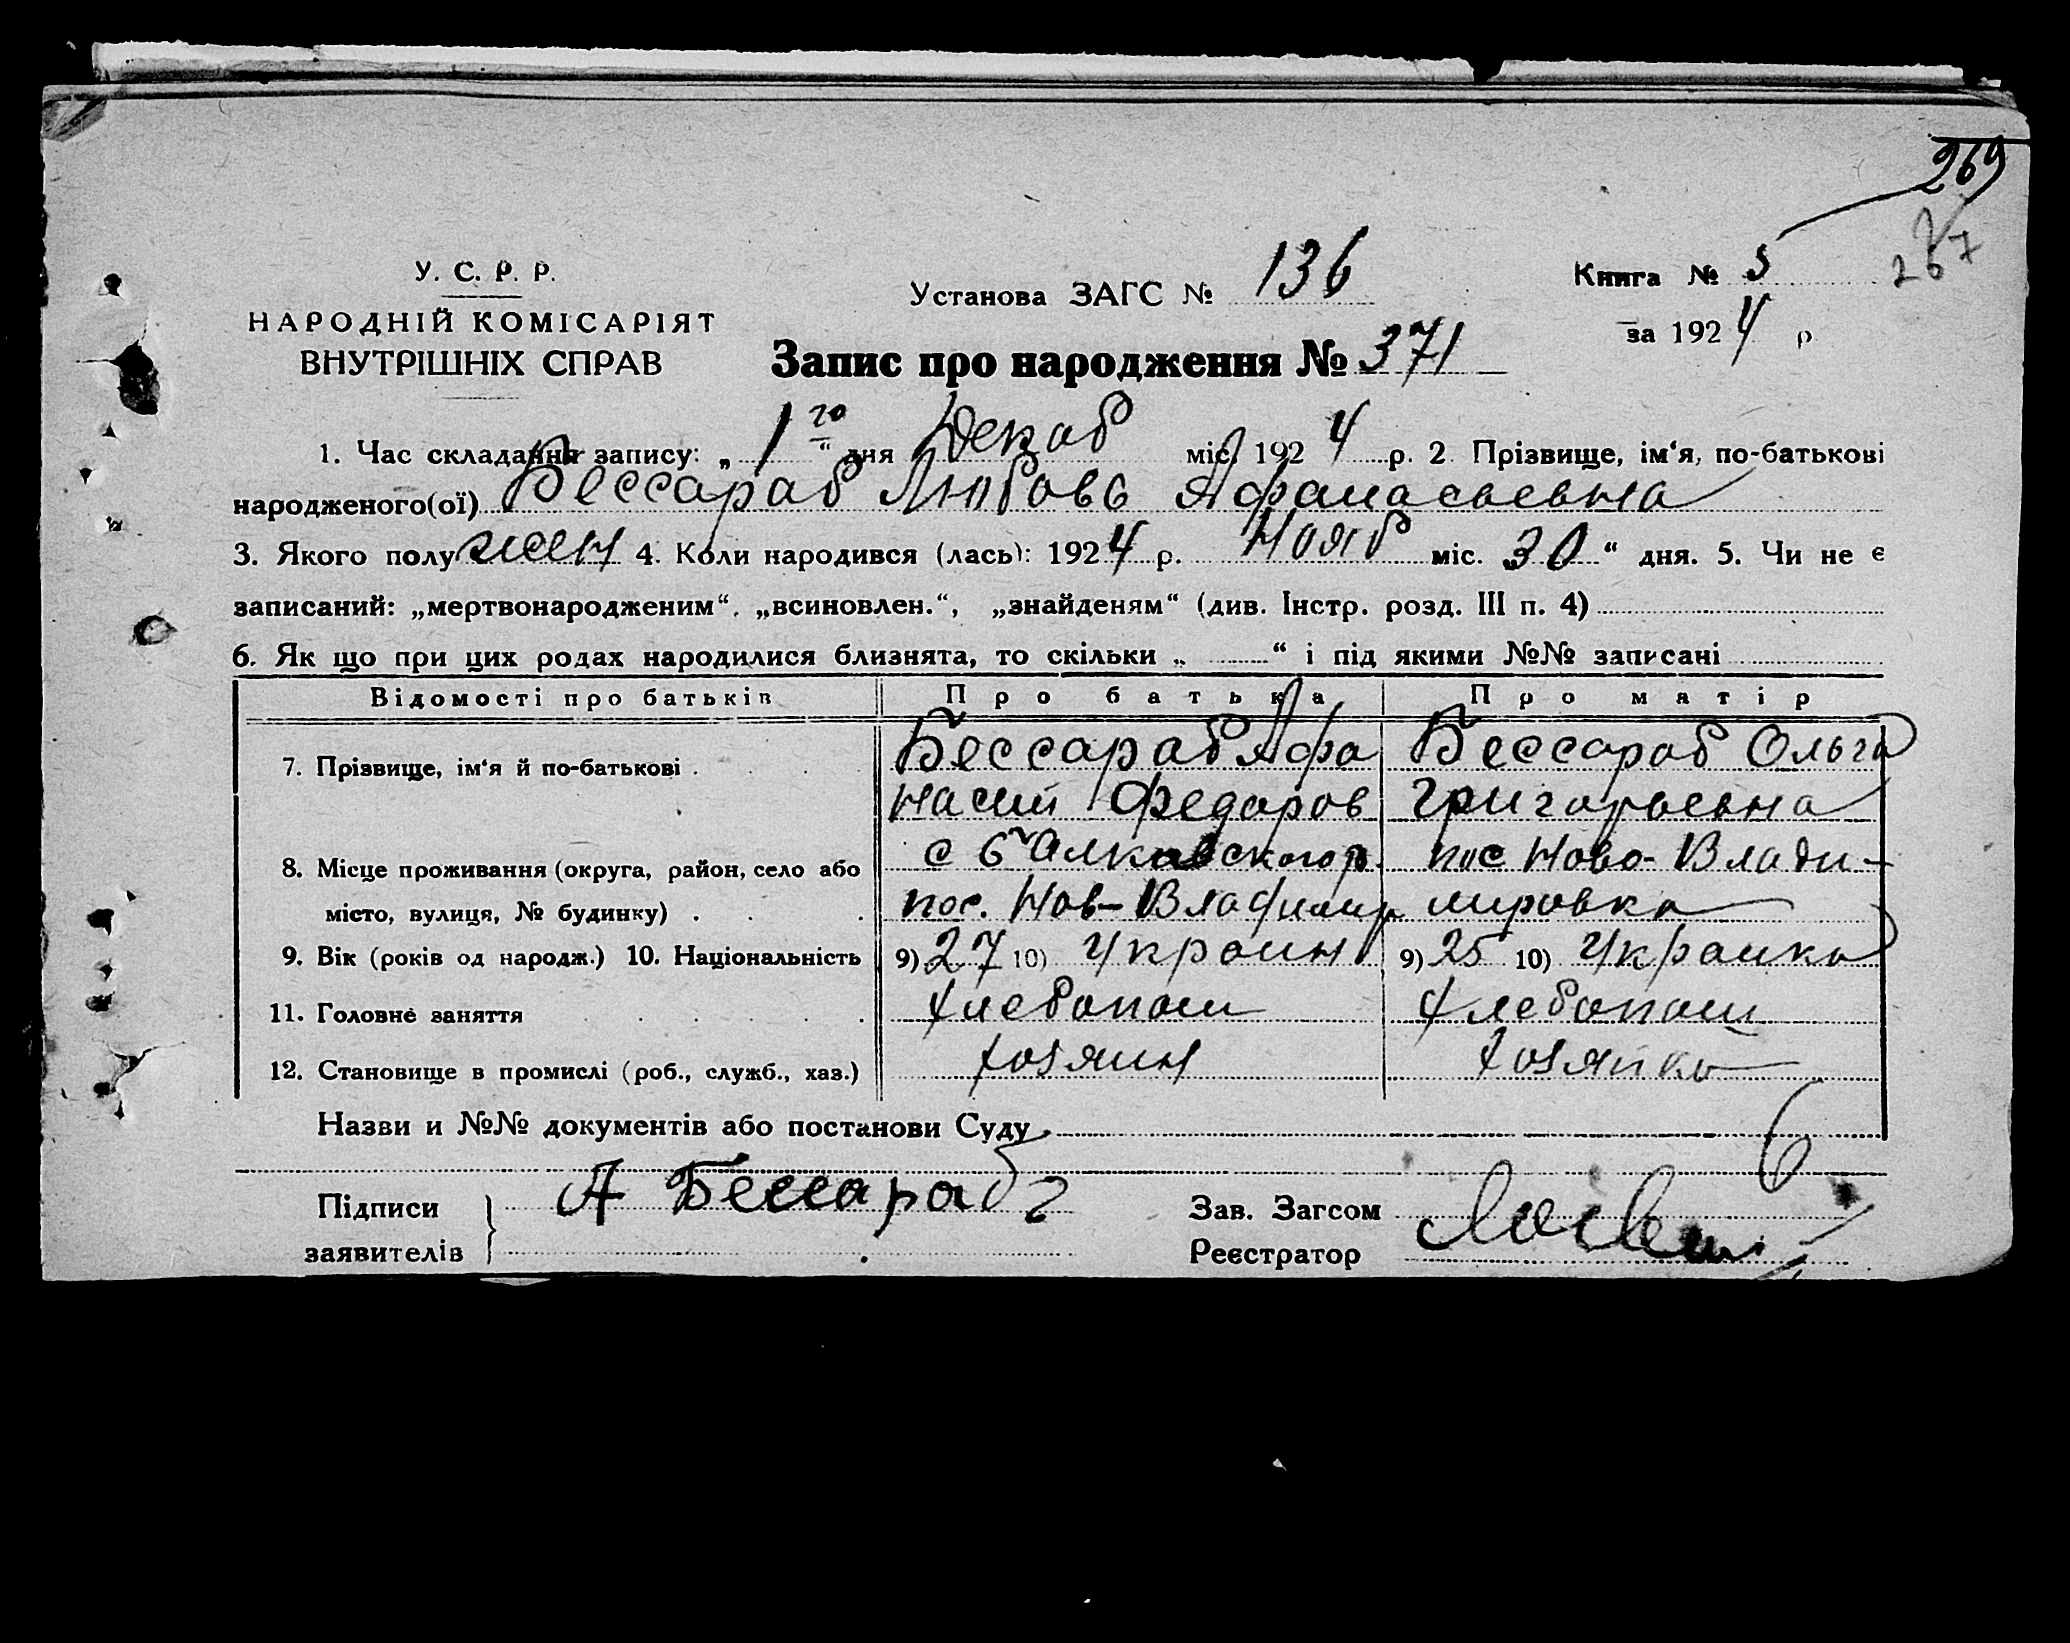 269
267
У. С. Р. Р.
НАРОДНІЙ КОМІСАРІЯТ
ВНУТРІШНІХ СПРАВ
Установа ЗАГС № 136
Книга № 5
за 1924 р
Запис про народження № 371
1. Час складання запису: „ 1го “ дня Декаб міс. 1924 р. 2. Прізвище, ім‘я, по-батькові
народженого(ої) Бессараб Любовь Афанасьевна
3. Якого полу жен 4. Коли народився (лась): 1924 р. Нояб міс. „30“ дня. 5. Чи не є
записаний: „мертвонародженим“, „всиновлен.“, „знайденям“ (див. Інстр. розд. III п. 4)
6. Як що при цих родах народилися близнята, то скільки „ “ і під якими №№ записані
Відомості про батьків Про батька Про матір
7. Прізвище, ім‘я й по-батькові . Бессараб Афа Бессараб Ольга
насий Федоров Григорьевна
8. Місце проживання (округа, район, село або с пос Ново-Влади-
місто, вулиця, № будинку) . . . пос. Нов-Владимир мировка
9. Вік (років од народж.) 10. Національність 9) 27 10) Украин 9) 25 10) Украинка
11. Головне заняття . . . . . . Хлебопаш Хлебопаш
12. Становище в промислі (роб., служб., хаз.) хозяин хозяйка
Назви и №№ документів або постанови Суду
Підписи А Бессараб Зав. Загсом
заявителів Реєстратор